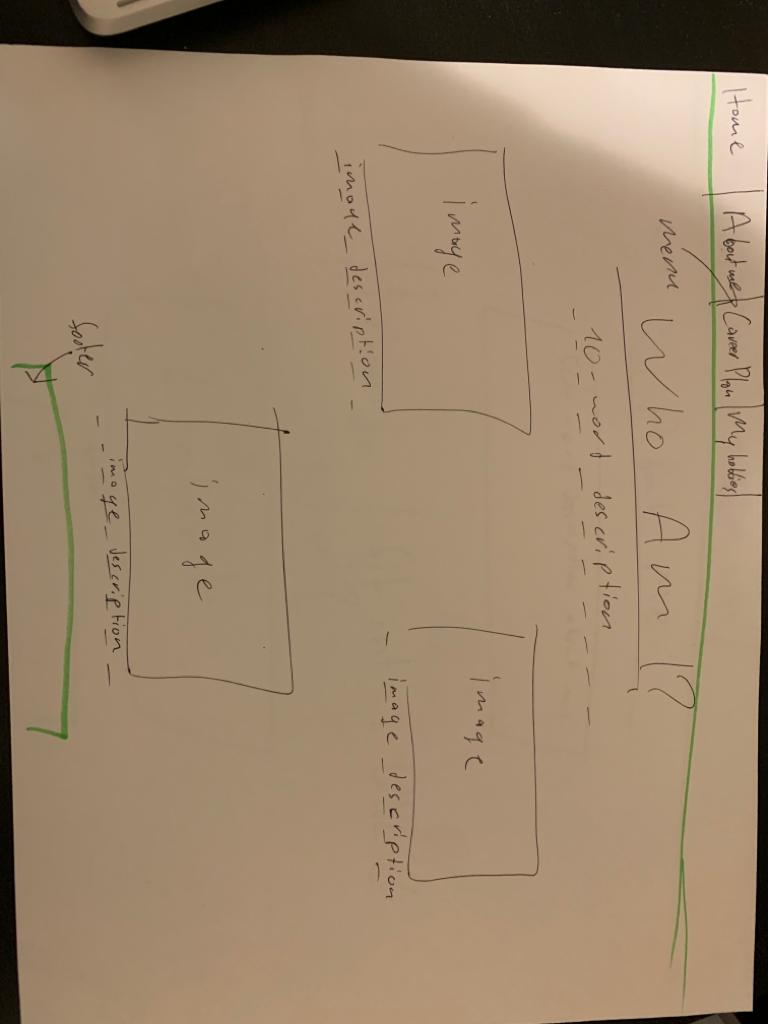 Home | About me | Career Plan | My hobbies |
menu
Who Am I?
- 10 - word description
image
image
image description
image description
image
image description
footer